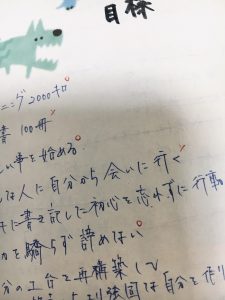 目標
ニング2000キロ
書 100冊
しい事を始める
な人に自分から会いに行く
に書き記した初心を忘れずに行動
力を驕らず諦めない
分の土台を再構築して
より強固な自分を作り